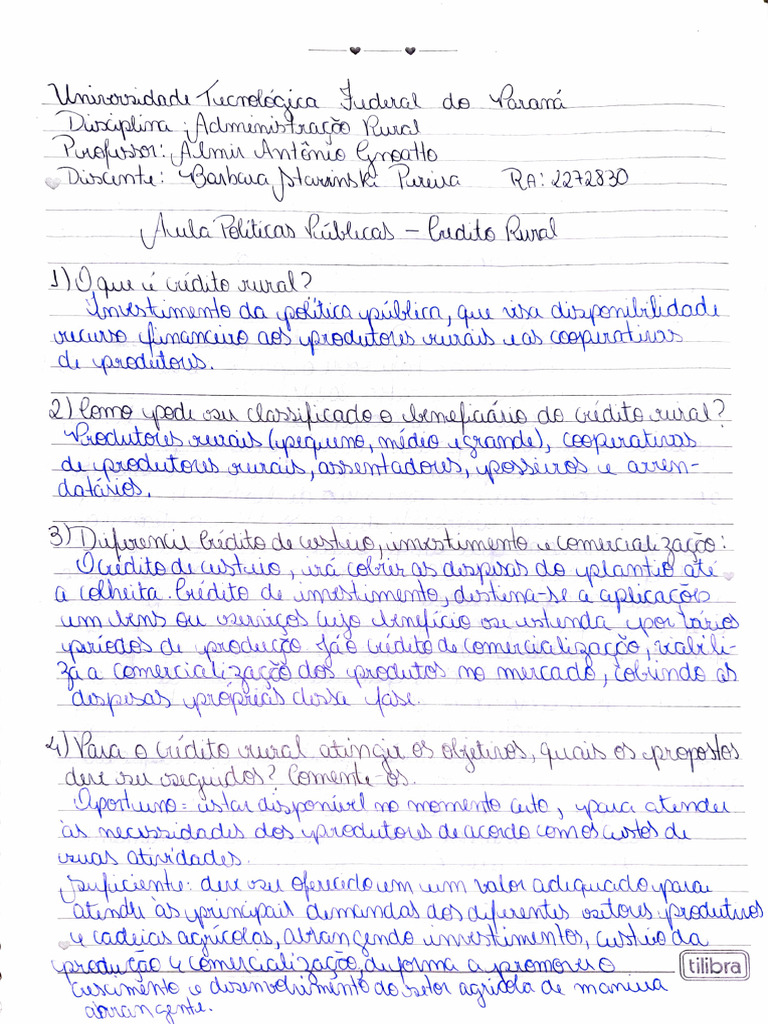 Universidade Tecnológica Federal do Paraná
Disciplina: Administração Rural
Professor: Almir Antônio Gnoatto
Discente: Barbara Starinski Pereira RA: 2272830
Aula Políticas Públicas – Credito Rural
1) O que é crédito rural?
Investimento da política pública, que visa disponibilidade
recurso financeiro aos produtores rurais e as cooperativas
de produtores.
2) Como pode ser classificado o beneficiário do crédito rural?
Produtores rurais (pequeno, médio e grande), cooperativas
de produtores rurais, assentadores, posseiros e arren-
datários.
3) Diferencie crédito de custeio, investimento e comercialização:
O crédito de custeio, irá cobrir as despesas do plantio até
a colheita. Crédito de investimento, destina-se a aplicações
um bens ou serviços cujo benefício se estenda por vários
períodos de produção. Já o crédito de comercialização, viabili-
zá a comercialização dos produtos no mercado, cobrindo as
despesas próprias dessa fase.
4) Para o crédito rural atingir os objetivos, quais os propostos
deve ser seguidos? Comente-os.
Oportuno: estar disponível no momento certo, para atender
às necessidades dos produtores de acordo com os custos de
suas atividades.
Suficiente: deve ser oferecido em um valor adequado para
atender às principais demandas dos diferentes setores produtivos
e cadeias agrícolas, abrangendo investimentos, custeio da
produção e comercialização, de forma a promover o
crescimento e desenvolvimento do setor agrícola de maneira
abrangente.
tilibra